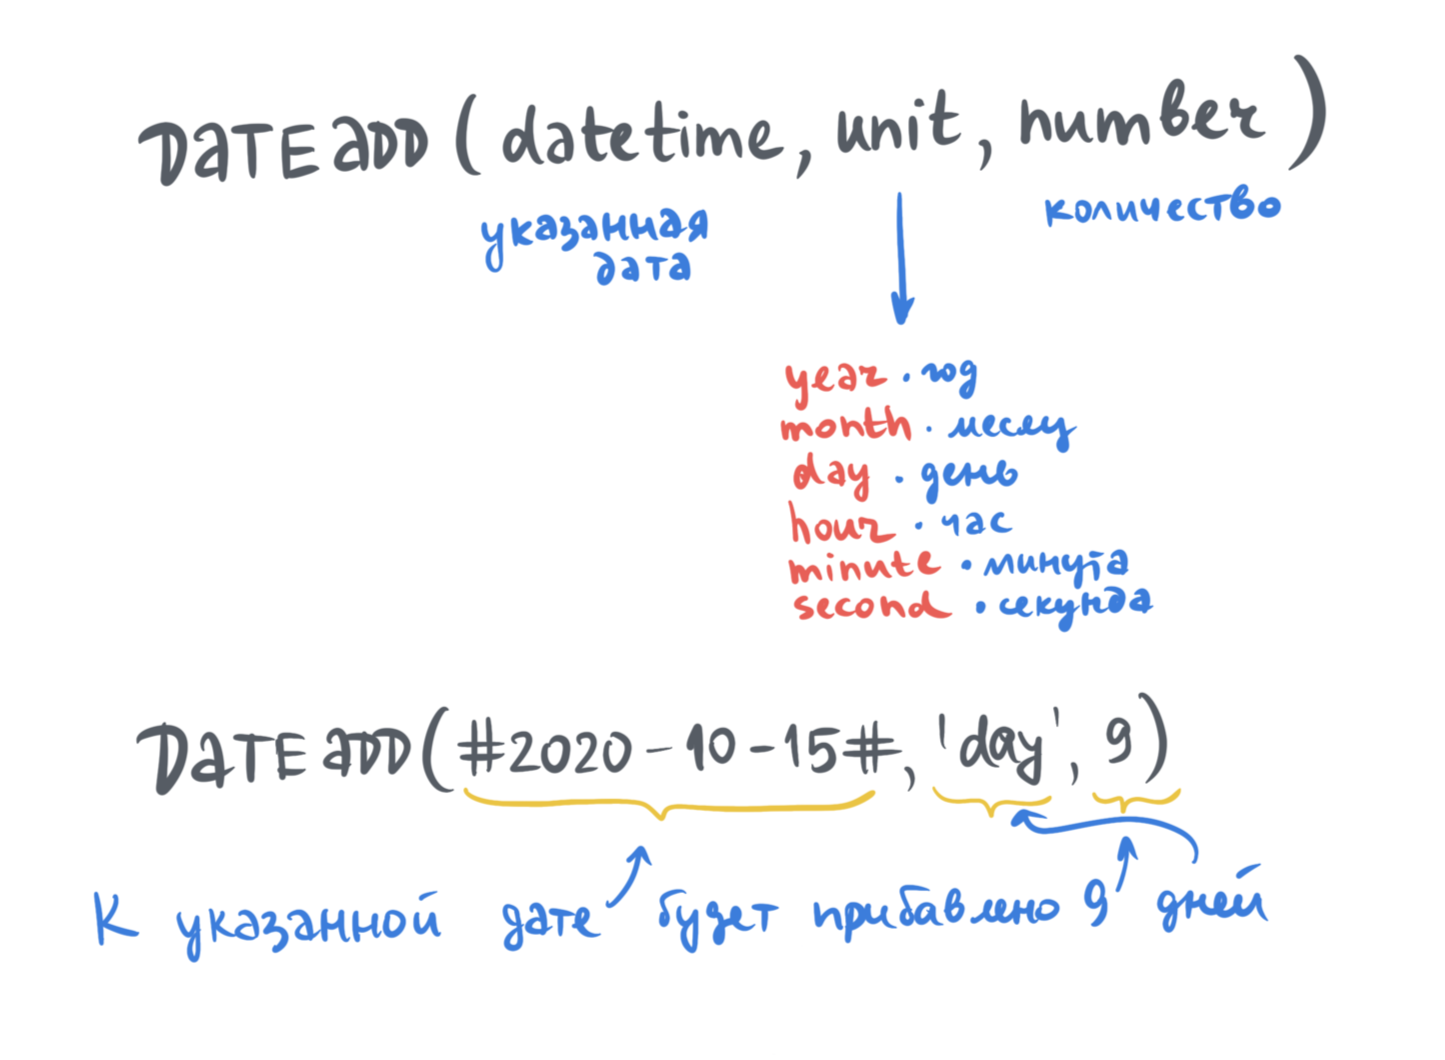 DATEADD(datetime, unit, number)
указанная
дата
количество
year · год
month · месяц
day · день
hour · час
minute · минута
second · секунда
DATEADD(#2020-10-15#, 'day', 9)
К указанной дате будет прибавлено 9 дней